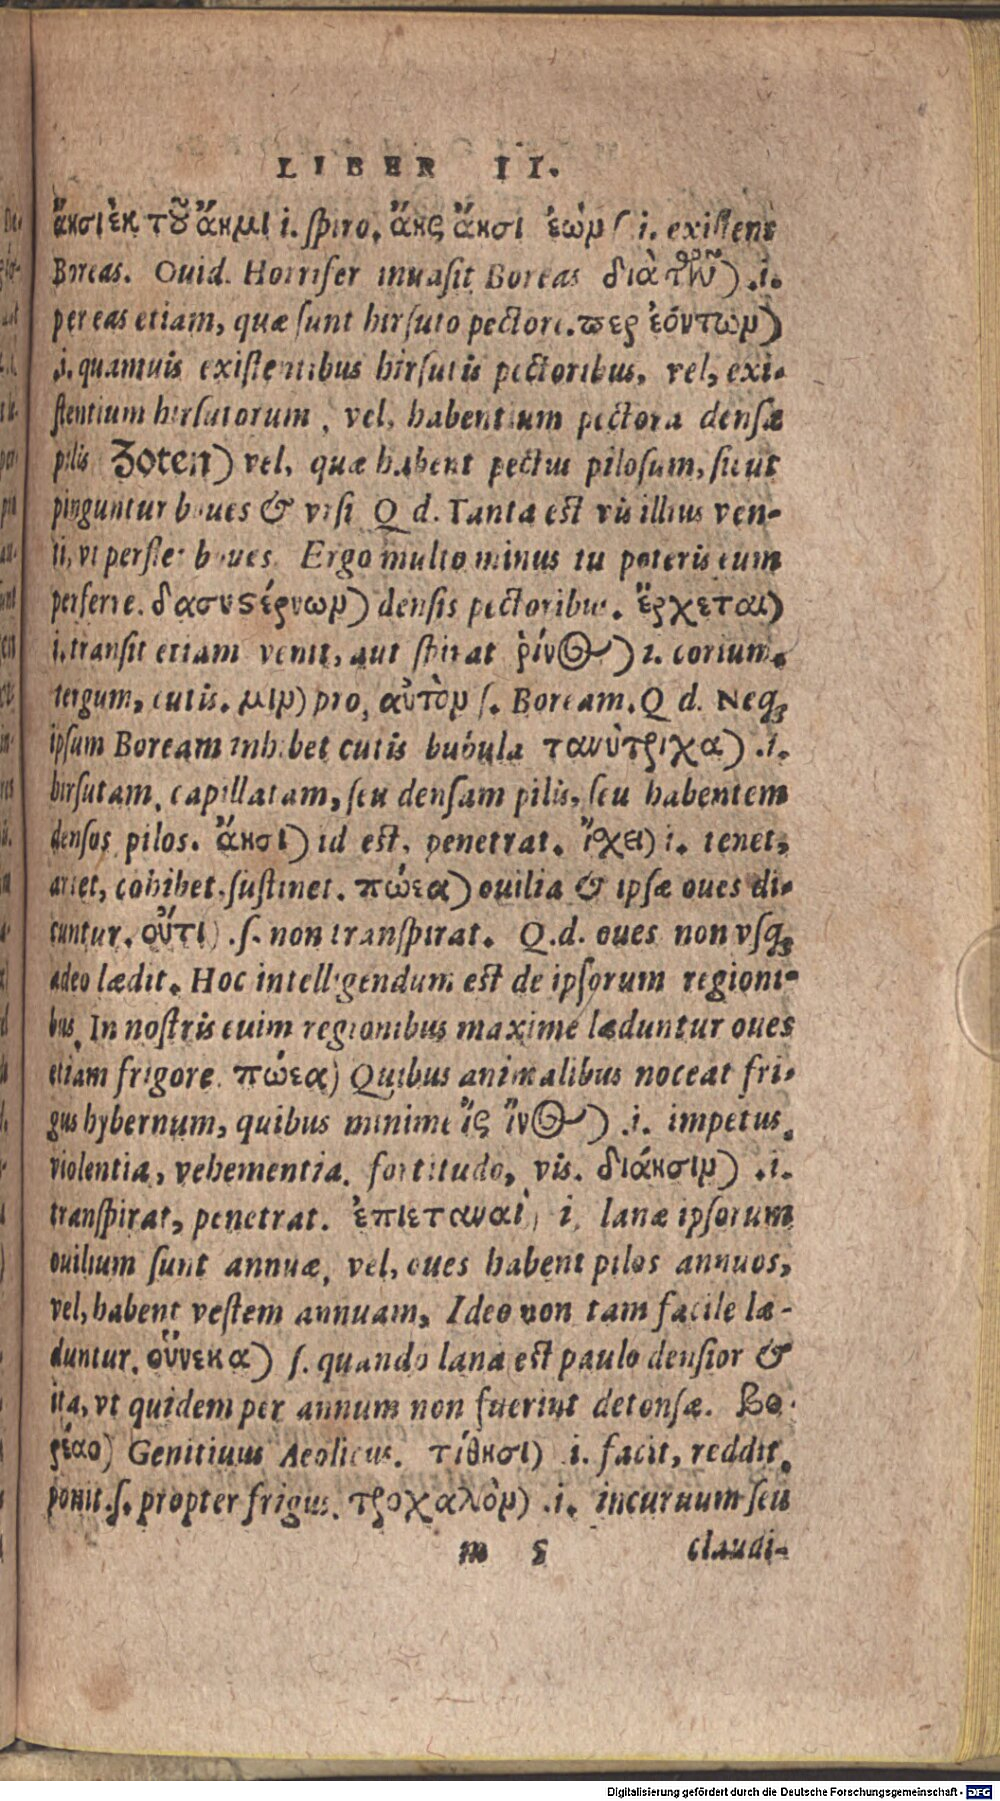 LIBER II.
ἄησι ἐκ τοῦ ἄημι i. spiro. ἄης ἄησι ἐὼν s. i. existens
Boreas. Ouid. Horrifer inuasit Boreas διὰ τῶν) .i.
per eas etiam, quæ sunt hirsuto pectore. περ ἐόντων)
.i. quamuis existentibus hirsutis pectoribus, vel, exi-
stentium hirsutorum, vel, habentium pectora densæ
pilis Zoten) vel, quæ habent pectus pilosum, sicut
pinguntur boues & vrsi Q d. Tanta est vis illius ven-
ti, vt perflet boues. Ergo multo minus tu poteris eum
perferre. δασυστέρνων) densis pectoribus. ἔρχεται)
i. transit etiam venit, aut spirat ῥίνος) i. corium,
tergum, cutis. μιν) pro, αὐτὸν s. Boream. Q d. Neq;
ipsum Boream inhibet cutis bubula τανύτριχα) .i.
hirsutam, capillatam, seu densam pilis, seu habentem
densos pilos. ἄησι) id est, penetrat. ἴσχει) i. tenet,
arcet, cohibet, sustinet. πώεα) ouilia & ipsæ oues di-
cuntur. οὔτι) .s. non transpirat. Q.d. oues non vsq;
adeo lædit. Hoc intelligendum est de ipsorum regioni-
bus. In nostris euim regionibus maxime læduntur oues
etiam frigore. πώεα) Quibus animalibus noceat fri-
gus hybernum, quibus minime ἲς ἲνος) .i. impetus,
violentia, vehementia, fortitudo, vis. διάησιν) .i.
transpirat, penetrat. ἐπιεταναὶ) i. lanæ ipsorum
ouilium sunt annuæ, vel, oues habent pilos annuos,
vel, habent vestem annuam, Ideo non tam facile læ-
duntur. οὕνεκα) s. quando lana est paulo densior &
ita, vt quidem per annum non fuerint detonsæ. Βο-
ρέαο) Genitiuus Aeolicus. τίθησι) .i. facit, reddit,
ponit. s. propter frigus. τροχαλὸν) .i. incuruum seu
m 5 claudi-
Digitalisierung gefördert durch die Deutsche Forschungsgemeinschaft - DFG